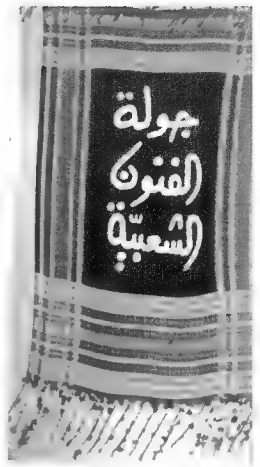 جولة
الفنون
الشعبيّة